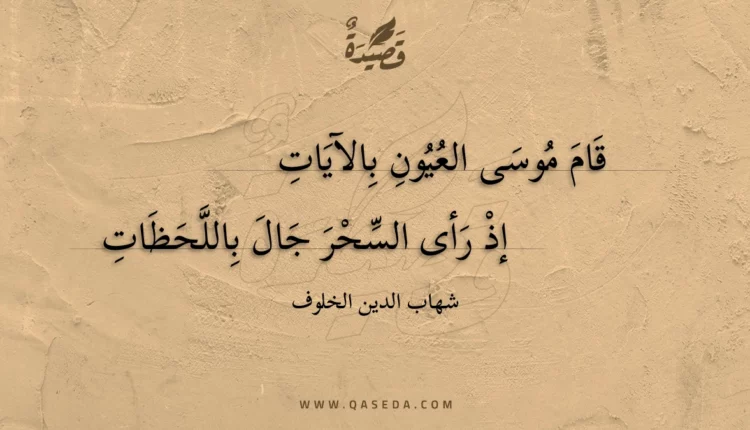 قَصِيدَةٌ
قَامَ مُوسَى العُيُونِ بِالآيَاتِ
إذْ رَأى السِّحْرَ جَالَ بِاللَّحَظَاتِ
شهاب الدين الخلوف
WWW.QASEDA.COM